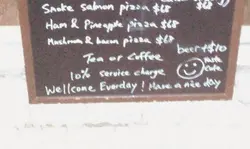 Smoke Salmon pizza $68
Ham & Pineapple pizza $68
Mushroom & bacon pizza $68
beer +$10
Tea or Coffee
10% Service charge
Wellcome Everday! Have a nice day